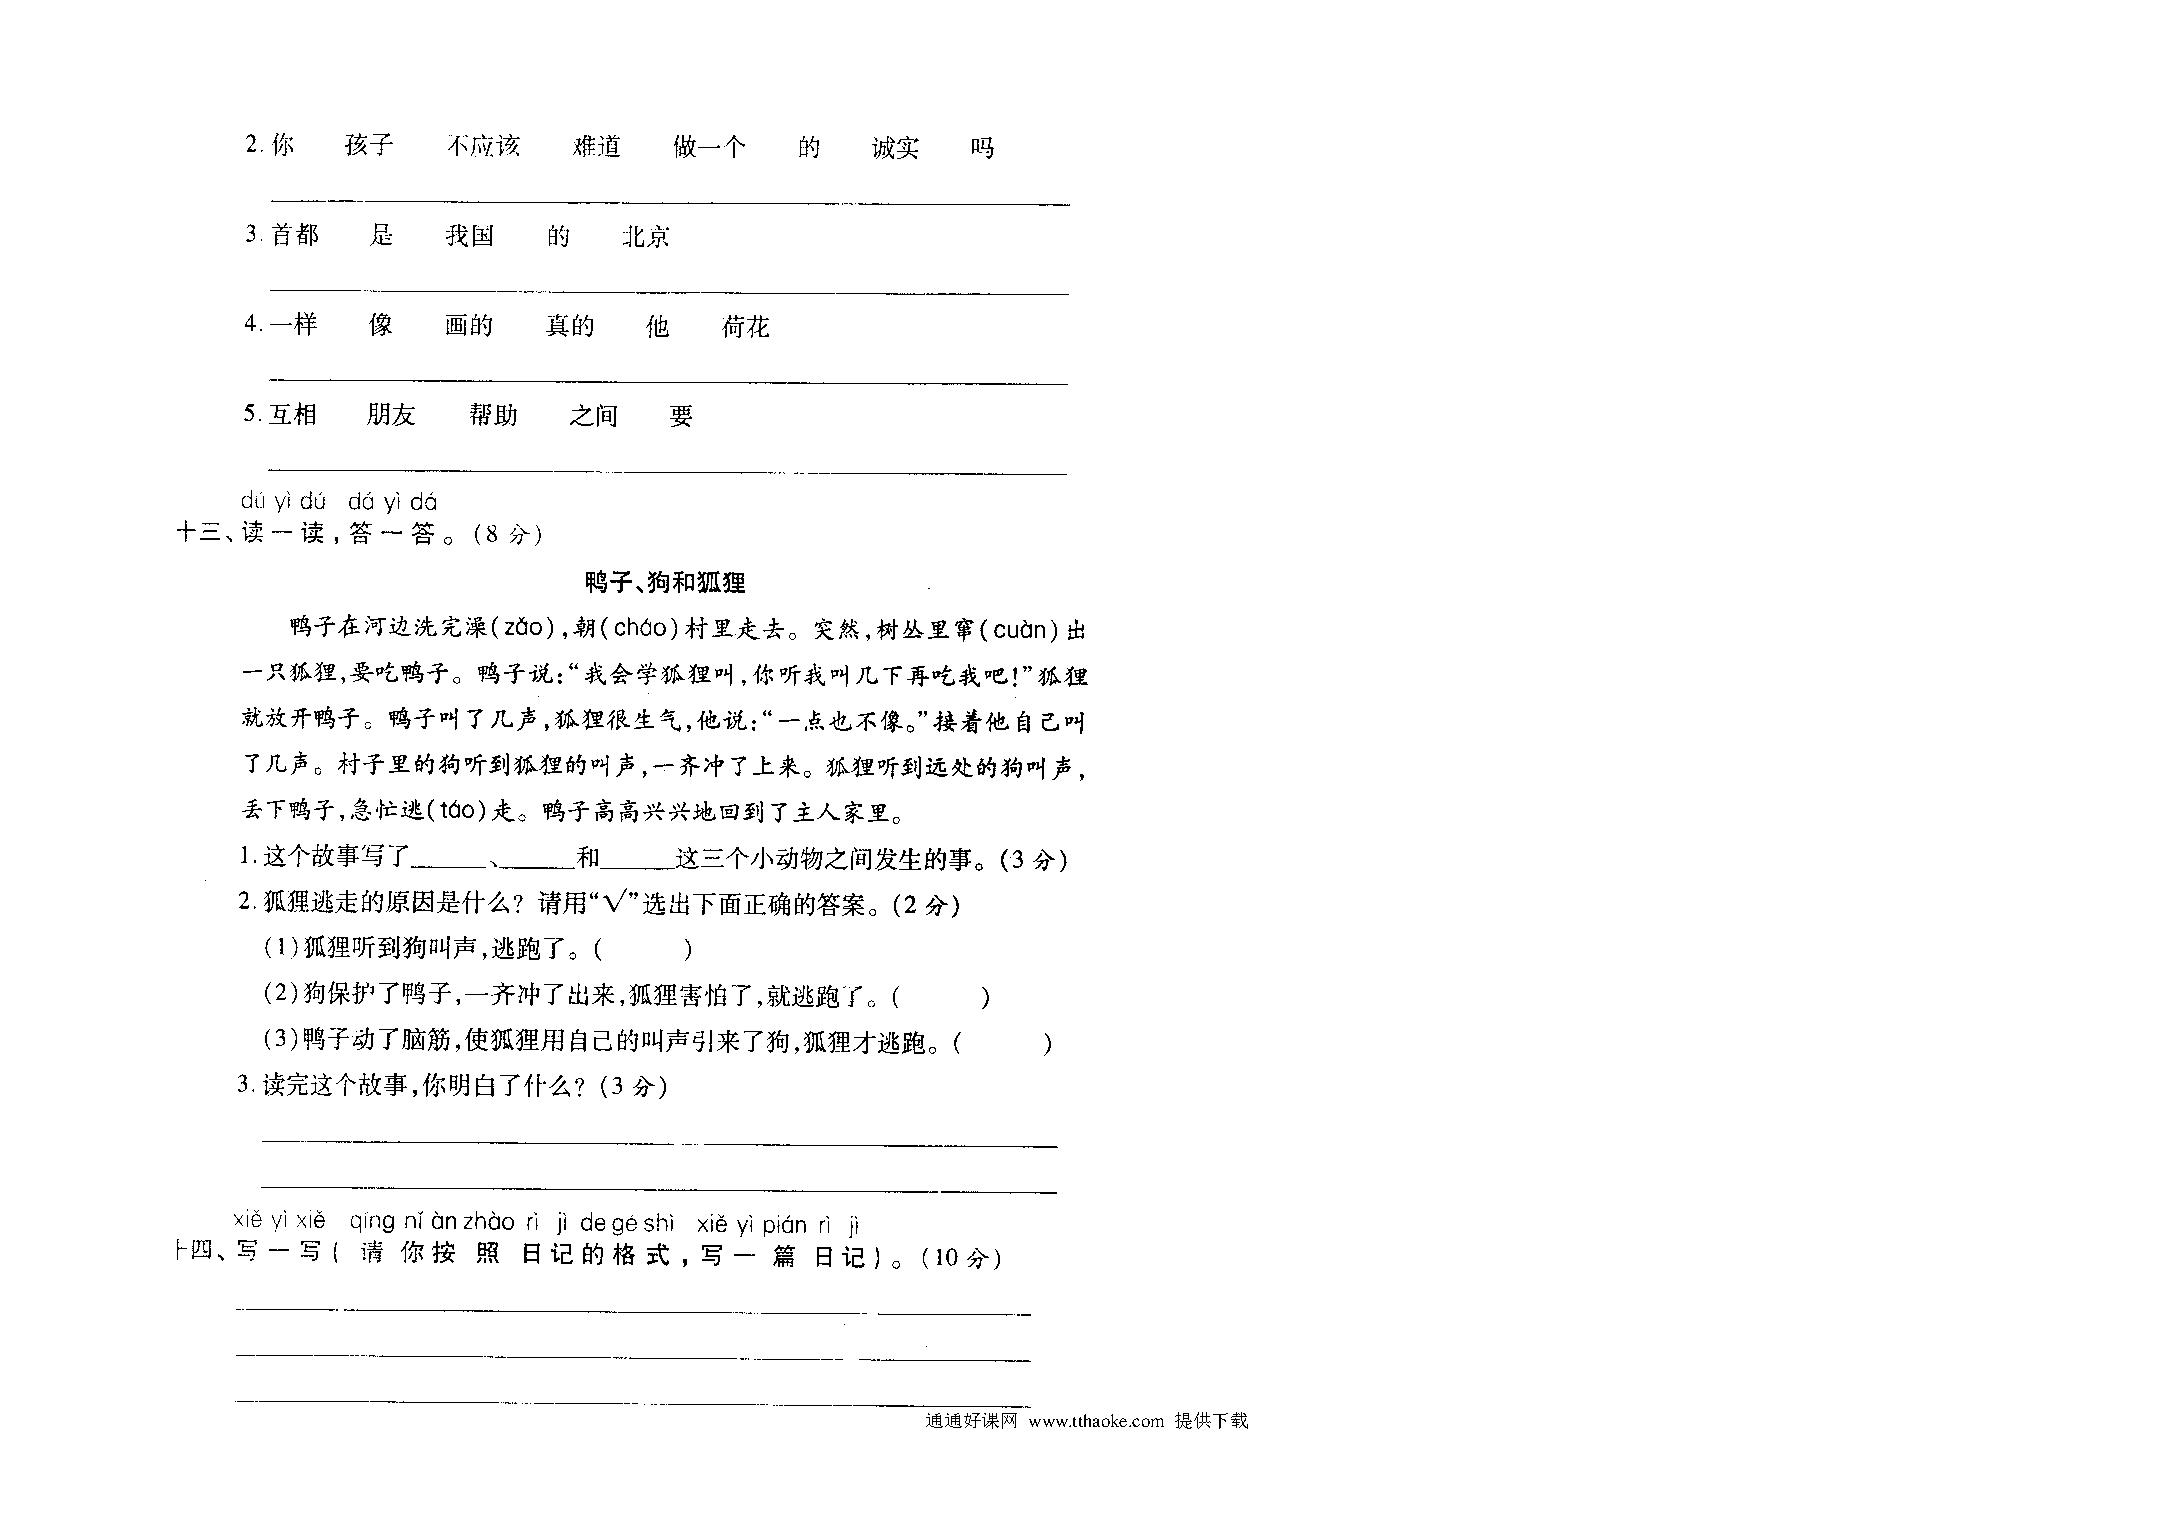 2. 你 孩子 不应该 难道 做一个 的 诚实 吗
3. 首都 是 我国 的 北京
4. 一样 像 画的 真的 他 荷花
5. 互相 朋友 帮助 之间 要
dú yì dú dá yì dá
十三、读一读,答一答。(8 分)
鸭子、狗和狐狸
鸭子在河边洗完澡(zǎo),朝(cháo)村里走去。突然,树丛里窜(cuàn)出
一只狐狸,要吃鸭子。鸭子说:“我会学狐狸叫,你听我叫几下再吃我吧!”狐狸
就放开鸭子。鸭子叫了几声,狐狸很生气,他说:“一点也不像。”接着他自己叫
了几声。村子里的狗听到狐狸的叫声,一齐冲了上来。狐狸听到远处的狗叫声,
丢下鸭子,急忙逃(táo)走。鸭子高高兴兴地回到了主人家里。
1. 这个故事写了______、______和______这三个小动物之间发生的事。(3 分)
2. 狐狸逃走的原因是什么? 请用“√”选出下面正确的答案。(2 分)
(1)狐狸听到狗叫声,逃跑了。( )
(2)狗保护了鸭子,一齐冲了出来,狐狸害怕了,就逃跑了。( )
(3)鸭子动了脑筋,使狐狸用自己的叫声引来了狗,狐狸才逃跑。( )
3. 读完这个故事,你明白了什么? (3 分)
xiě yì xiě qīng nǐ àn zhào rì jì de gé shì xiě yì pián rì jì
十四、写一写( 请你按照日记的格式,写一篇日记)。(10 分)
通通好课网 www.tthaoke.com 提供下载